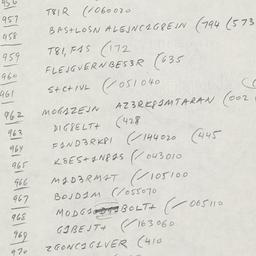 956 T8IR (✓060020
957 BAS+LOSN ALEJNC1G8EJN (794 (573
958 T8I,F1S (172
959 FLEJGVERNBES3R (635
960 S+C+IVL (✓051040
961
962 MOG1ZEJN AZ3RKP1MTARAN (002 (
963 DIG8ELT+ (428
964 F1ND3RK8I (✓144020 (445
965 K8ES+1N81S (✓043010
966 M1D3RM1T (✓105100
967 BOJD1M (✓055070
968 MODG1 BOLT+ (✓005110
969 G1BEJT+ (✓163060
970 ZGONC1G1VER (410